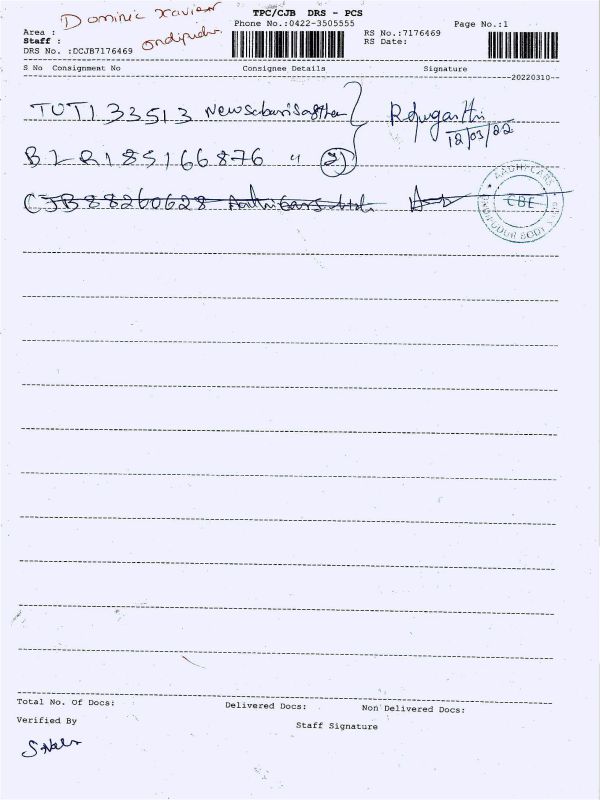 Dominic Xavier
TPC/CJB DRS - PCS
Area :
Phone No.:0422-3505555
Page No.:1
Staff :
RS No.:7176469
DRS No. :DCJB7176469
RS Date:
S No Consignment No Consignee Details Signature
20220310
TUT133513
12/03/22
BLR185166876 " 2
CJB88260628
AADHI CARS
CBE
Total No. Of Docs: Delivered Docs: Non Delivered Docs:
Verified By
Staff Signature